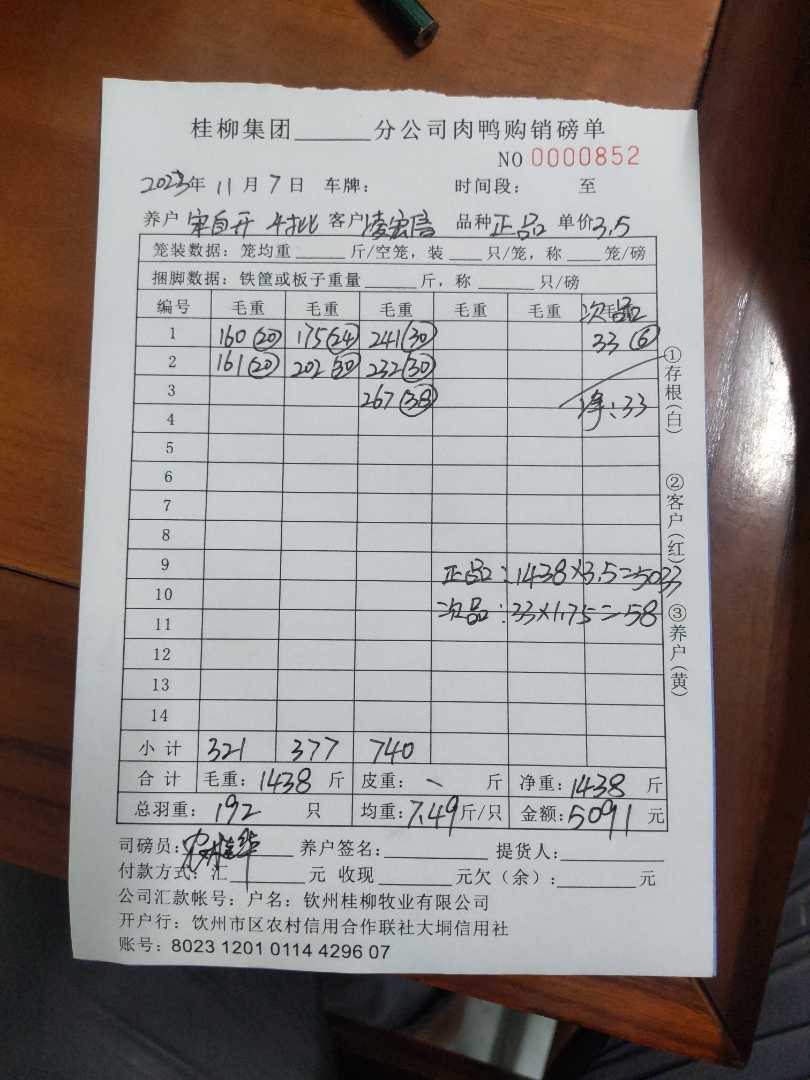 桂柳集团______分公司肉鸭购销磅单
NO 0000852
2023年 11月7日 车牌： 时间段： 至
养户 宋自开 4批 客户 凌宏信 品种 正品 单价 3.5
笼装数据：笼均重______斤/空笼，装____只/笼，称____笼/磅
捆脚数据：铁筐或板子重量______斤，称______只/磅
编号 毛重 毛重 毛重 毛重 毛重 次品
1 160(20) 175(24) 241(30) 33(6)
2 161(20) 202(30) 232(30)
3 267(38) 净：33
4
5
6
7
8
9 正品：1438×3.5=5033
10
11 次品：33×1.75=58
12
13
14
小计 321 377 740
合计 毛重：1438斤 皮重：一 斤 净重：1438斤
总羽重：192 只 均重：7.49斤/只 金额：5091元
司磅员： 养户签名：________ 提货人：________
付款方式：汇______元 收现______元欠（余）：______元
公司汇款帐号：户名：钦州桂柳牧业有限公司
开户行：钦州市区农村信用合作联社大垌信用社
账号：8023 1201 0114 4296 07
①存根（白）
②客户（红）
③养户（黄）